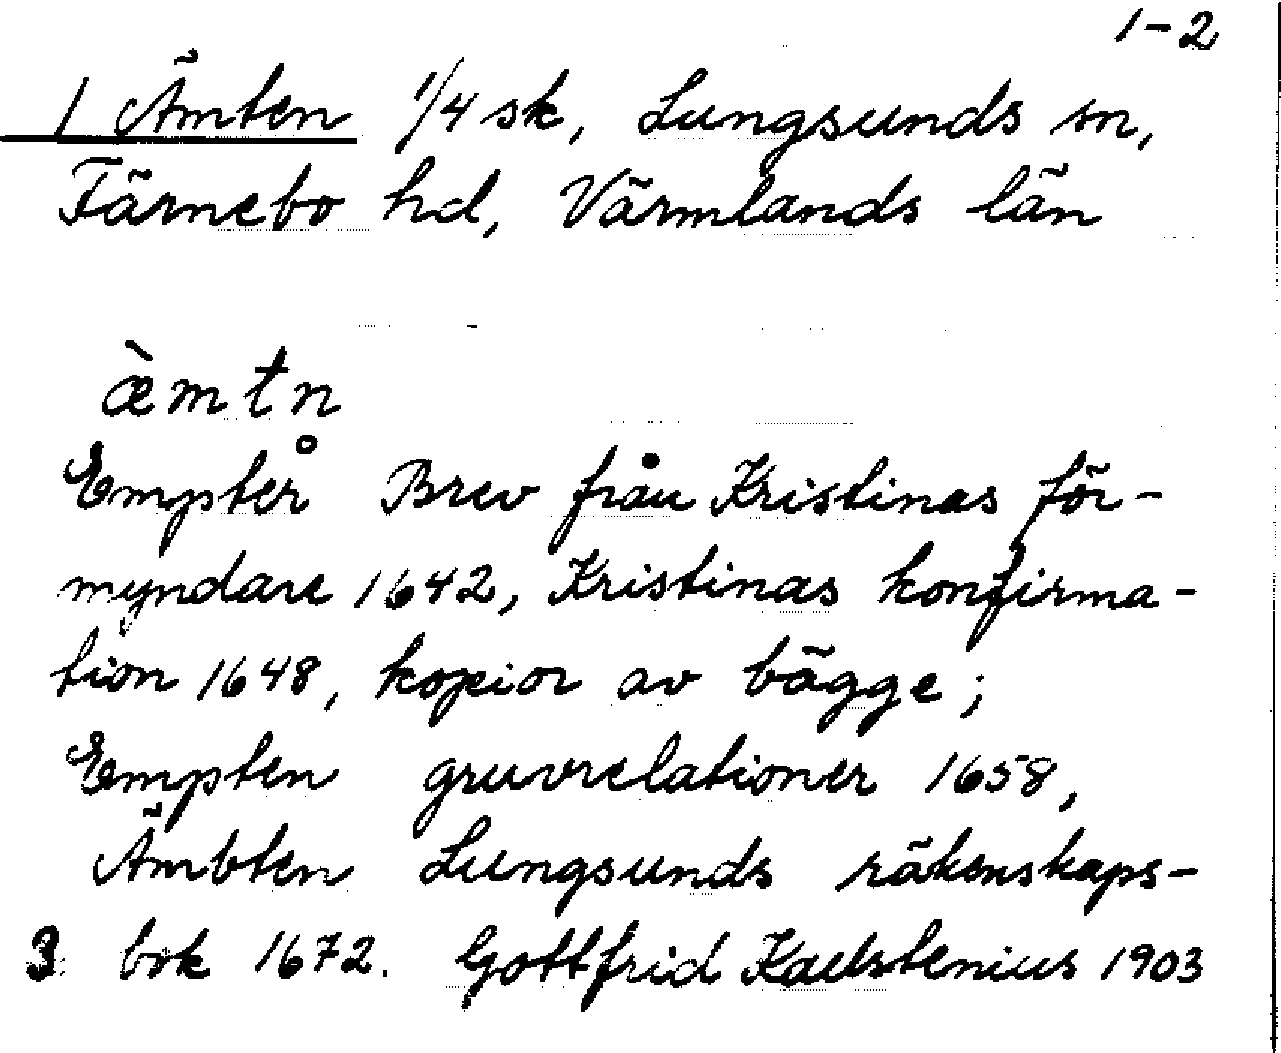 1-2
1 Ämten 1/4 sk, Lungsunds sn,
Färnebo hd, Värmlands län
æ̀mtn
Empter̊ Brev från Kristinas för-
myndare 1642, Kristinas konfirma-
tion 1648, kopior av bägge;
Empten gruvrelationer 1658,
Ämbten Lungsunds räkenskaps-
3 bok 1672. Gottfrid Kallstenius 1903